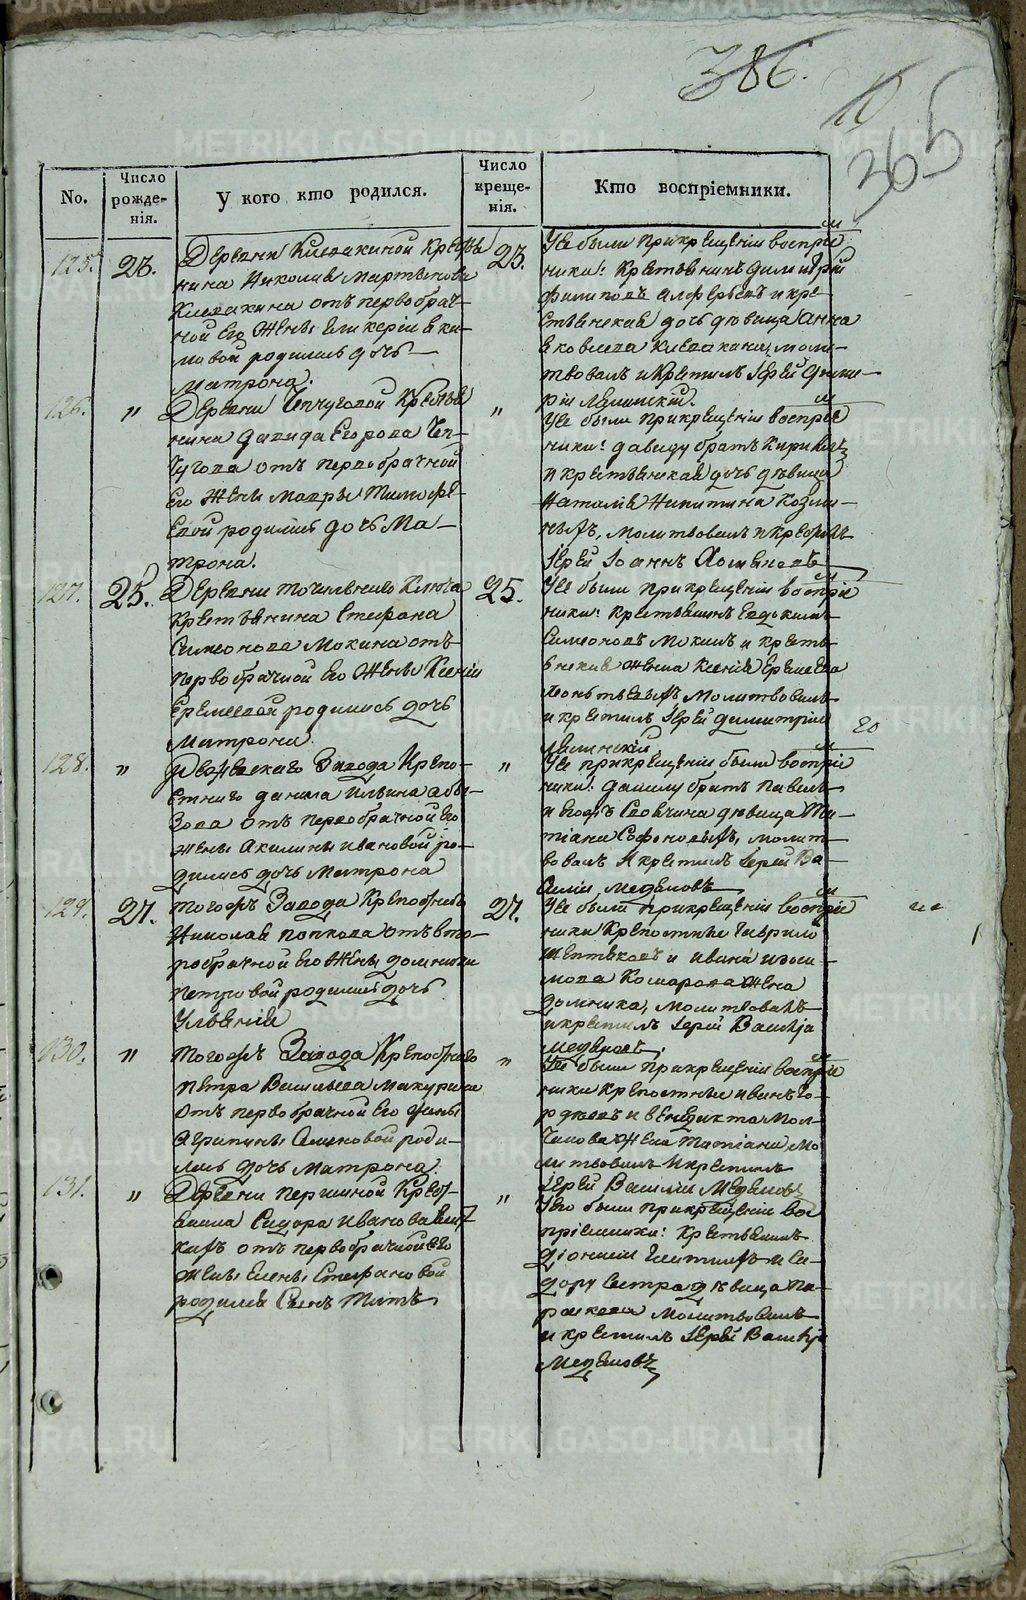 386.
365
No.
Число рожде-нія.
У кого кто родился.
Число креще-нія.
Кто воспріемники.
125. 23.
Деревни Клевакиной Крестья
нина Николая Мартынова
Клевакина отъ первобрач-
ной Его Жены Гликеріи Яки-
мовой родилась дочь
Матрона.
23.
Ее были при крещеніи воспріем
ники: Крестьянинъ Димитрій
Филиповъ Алферьевъ и кре-
стьянская дочь девица Анна
Яковлева Клевакины, моли-
твовалъ и Крестилъ Іерей Дими-
трій Ляпинскій.
126. "
Деревни Чепчуговой Крестья
нина Давида Егорова Чеп-
чугова отъ первобрачной
Его Жены Мавры Тимофе-
евой родилась дочь Ма-
трона.
"
Ее были при крещеніи воспріем
ники: Давиду братъ Кирикъ
и крестьянская дочь девица
Наталія Никитина Козми-
ныхъ, молитвовалъ и крестилъ
Іерей Іоаннъ
127. 25.
Деревни Точильнаго Ключа
Крестьянина Стефана
Симеонова Мокина отъ
первобрачной Его Жены Ксеніи
Еремеевой родилась дочь
Матрона.
25.
Ее были при крещеніи воспріем
ники: крестьянинъ Евдокимъ
Симеоновъ Мокинъ и кресть
янская жена Ксенія Еремеева
Леонтьевыхъ молитвовалъ
и крестилъ Іерей Димитрій
Ляпинскій.
128. "
Режевскаго Завода Крепо-
стнаго Данила Ильина
отъ первобрачной Его
жены Акилины Ивановой ро-
дилась дочь Матрона
"
Ее при крещеніи были воспріем
ники: Данилу братъ Павелъ
девица Та-
тіана Софоновыхъ, молит
вовалъ и крестилъ Іерей Ва-
силій Медяновъ
129. 27.
Тогожъ Завода Крепостнаго
Николая Попкова отъ вто-
робрачной Его Жены Домники
Петровой родилась дочь
Ульянія
27.
Ее были при крещеніи воспріем
ники Крепостные Гаврило
и Ивана
Комарова жена
Домника, молитвовалъ
и крестилъ Іерей Василій
Медяновъ.
130. "
Тогожъ Завода Крепостнаго
Петра Васильева Макурина
отъ первобрачной Его жены
Агрипины роди-
лась дочь Матрона.
"
Ее были при крещеніи воспріем
ники Крепостные Иванъ Го-
рдеевъ и Венедикта Мол-
чанова Жена Татіана, мо
литвовалъ и крестилъ
Іерей Василій Медяновъ
131. "
Деревни Першиной Крест-
янина Сидора Иванова
отъ первобрачной его
жены Елены Стефановой
родился Сынъ Титъ
"
Его были при крещеніи вос
пріемники: Крестьянинъ
Діонисій и Си-
дору Сестра девица Па-
раскева молитвовалъ
и крестилъ Іерей Василій
Медяновъ